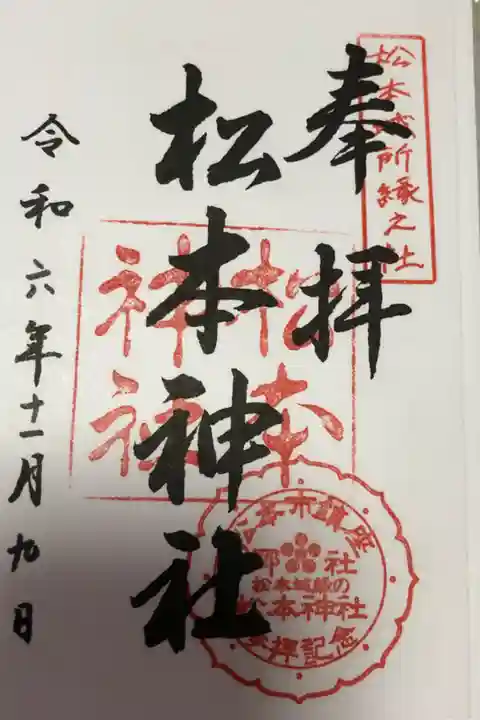 松本城所縁之社
奉拝
松本神社
令和六年十一月九日
松本
神社
松本市鎮座
社
松本城縁の
松本神社
参拝記念